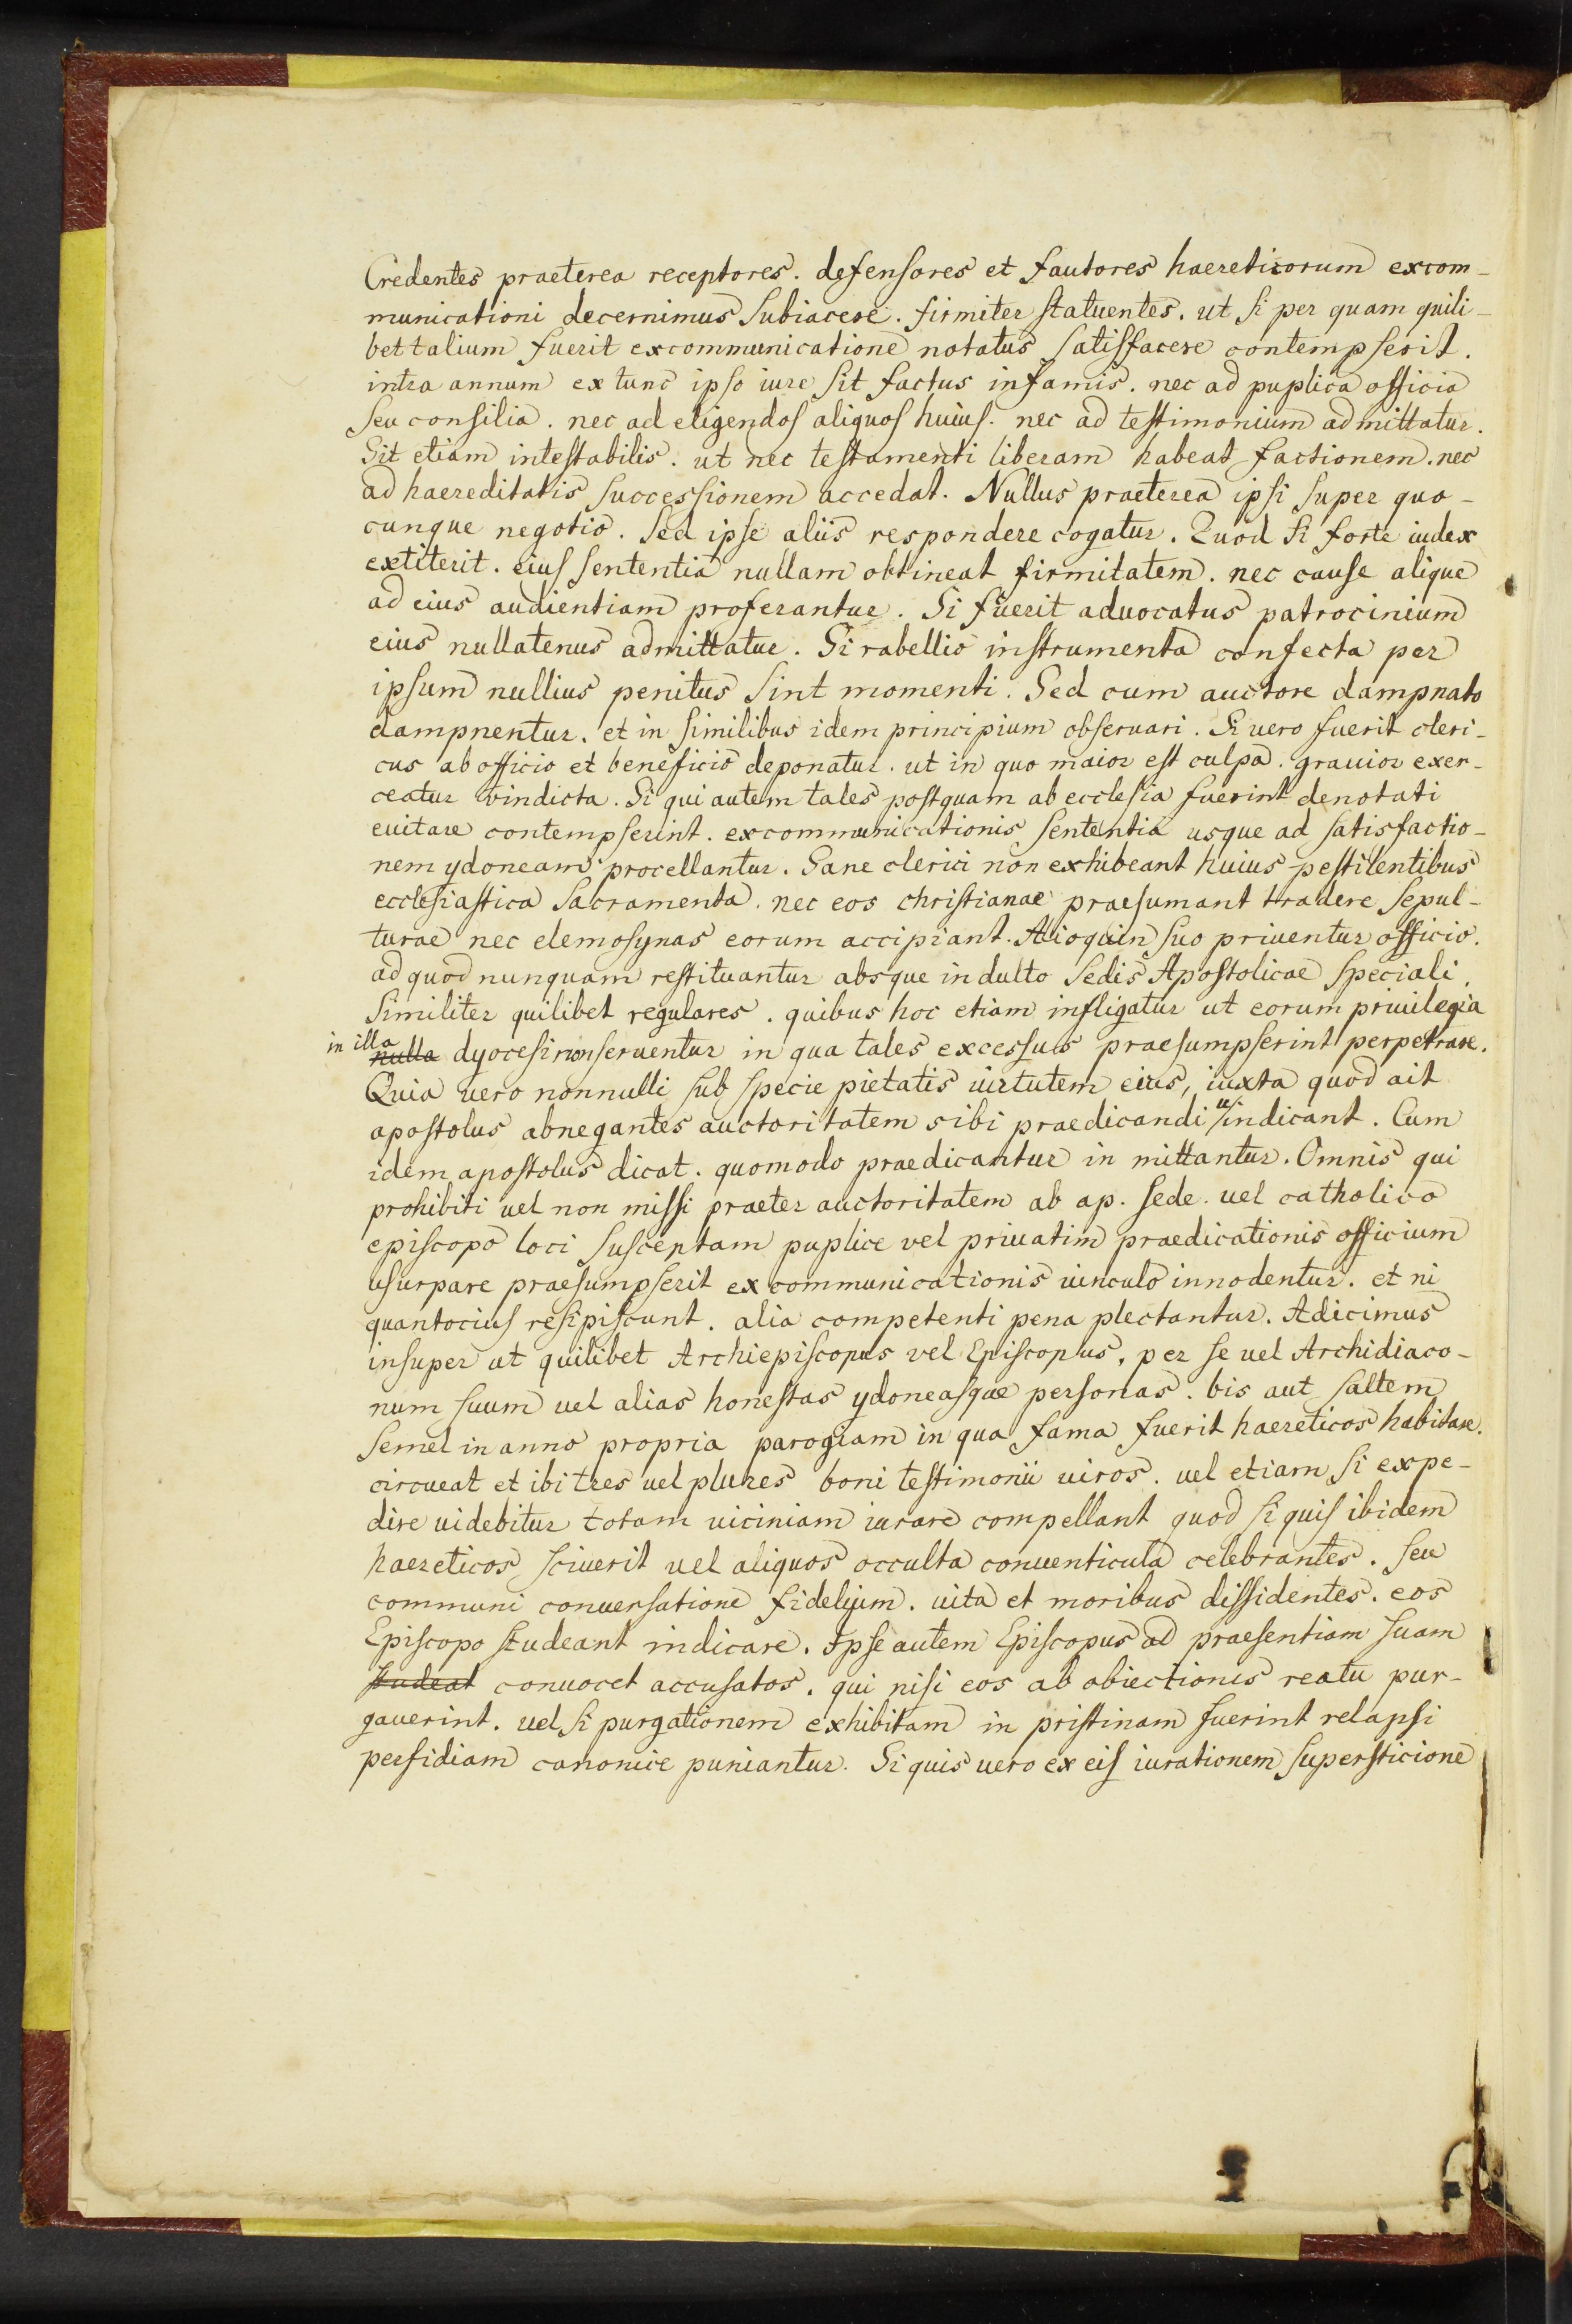 Credentes praeterea receptores. defensores et fautores haereticorum excom-
municationi decernimus subiacere. firmiter statuentes. ut si per quam quili-
bet talium fuerit excommunicatione notatus satisfacere contempserit.
intra annum ex tunc ipso iure sit factus infamis. nec ad puplica officia
seu consilia. nec ad eligendos aliquos huius. nec ad testimonium admittatur.
Sit etiam intestabilis. ut nec testamenti liberam habeat factionem. nec
ad haereditatis successionem accedat. Nullus praeterea ipsi super quo-
cunque negotio. sed ipse aliis respondere cogatur. Quod si forte iudex
extiterit. eius sententia nullam obtineat firmitatem. nec cause alique
ad eius audientiam proferantur. Si fuerit aduocatus patrocinium
eius nullatenus admittatur. Si rabellio instrumenta confecta per
ipsum nullius penitus sint momenti. Sed cum auctore dampnato
dampnentur. et in similibus idem principium obseruari. Si uero fuerit cleri-
cus ab officio et beneficio deponatur. ut in quo maior est culpa. grauior exer-
ceatur vindicta. Si qui autem tales postquam ab ecclesia fuerint denotati
euitare contempserint. excommunicationis sententia usque ad satisfactio-
nem ydoneam procellantur. Sane clerici non exhibeant huius pestilentibus
ecclesiastica sacramenta. nec eos christianae praesumant tradere sepul-
turae nec elemosynas eorum accipiant. Alioquin suo priuentur officio.
ad quod nunquam restituantur absque indulto Sedis Apostolicae speciali.
Similiter quilibet regulares. quibus hoc etiam infligatur ut eorum priuilegia
in illa nulla dyocesi non seruentur in qua tales excessus praesumpserint perpetrare.
Quia uero nonnulli sub specie pietatis uirtutem eius, iuxta quod ait
apostolus abnegantes auctoritatem sibi praedicandi uindicant. Cum
idem apostolus dicat. quomodo praedicantur in mittantur. Omnis qui
prohibiti uel non missi praeter auctoritatem ab ap. sede. uel catholico
episcopo loci susceptam puplice vel priuatim praedicationis officium
usurpare praesumpserit excommunicationis uinculo innodentur. et ni
quantocius resipiscunt. alia competenti pena plectantur. Adicimus
insuper ut quilibet Archiepiscopus vel Episcopus, per se uel Archidiaco-
num suum uel alias honestas ydoneasque personas. bis aut saltem
semel in anno propria parogiam in qua fama fuerit haereticos habitare.
circueat et ibi tres uel plures boni testimonii uiros. uel etiam si expe-
dire uidebitur totam uiciniam iurare compellant quod si quis ibidem
haereticos sciuerit uel aliquos occulta conuenticula celebrantes. seu
communi conuersatione fidelium. uita et moribus dissidentes. eos
Episcopo studeant indicare. Ipse autem Episcopus ad praesentiam suam
studeat conuocet accusatos. qui nisi eos ab obiectionis reatu pur-
gauerint. uel si purgationem exhibitam in pristinam fuerint relapsi
perfidiam canonice puniantur. Si quis uero ex eis iurationem supersticione